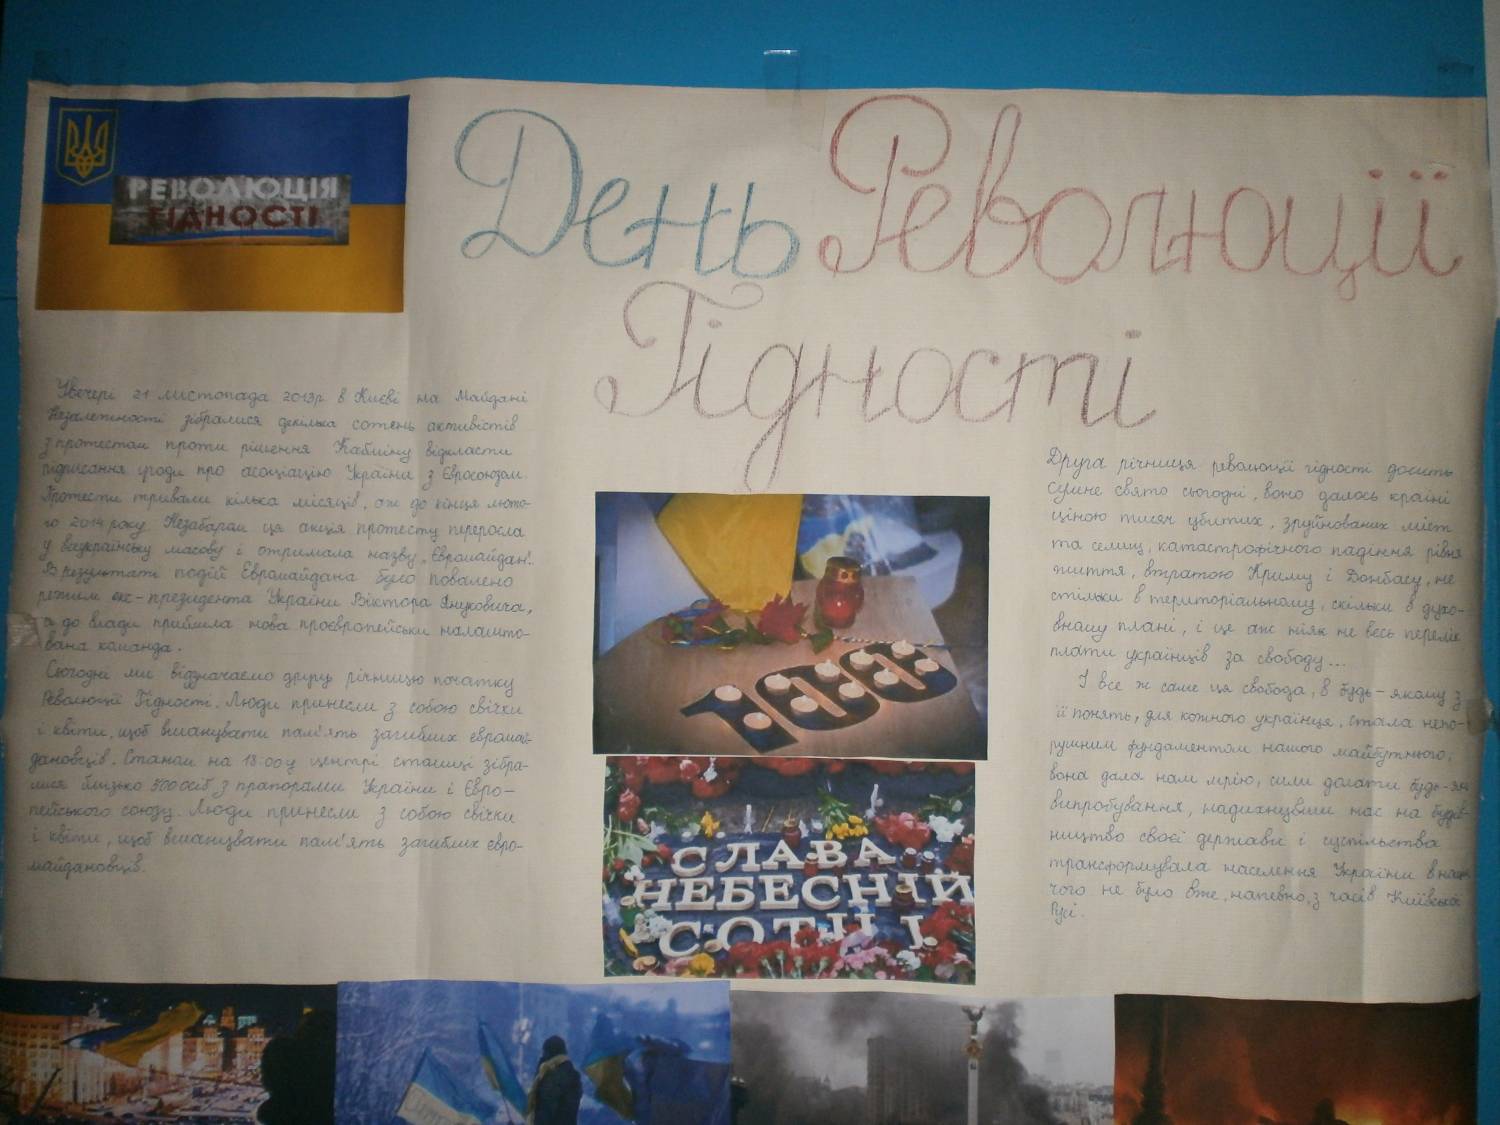 РЕВОЛЮЦІЯ
ГІДНОСТІ
День Революції
Гідності
Увечері 21 листопада 2013р в Києві на Майдані
Незалежності зібралися декілька сотень активістів
з протестом проти рішення Кабміну відкласти
підписання угоди про асоціацію України з Євросоюзом.
Протести тривали кілька місяців, аж до кінця люто-
го 2014 року. Незабаром ця акція протесту переросла
у всеукраїнську масову і отримала назву „Євромайдан".
В результаті подій Євромайдана було повалено
режим екс-президента України Віктора Януковича,
а до влади прийшла нова проєвропейськи налашто-
вана команда.
Сьогодні ми відзначаємо другу річницю початку
Революції Гідності. Люди принесли з собою свічки
і квіти, щоб вшанувати пам'ять загиблих євромай-
дановців. Станом на 18:00 у центрі столиці зібра-
лися близько 500 осіб з прапорами України і Євро-
пейського союзу. Люди принесли з собою свічки
і квіти, щоб вшанувати пам'ять загиблих євро-
майдановців.
Друга річниця революції гідності досить
сумне свято сьогодні, воно далось країні
ціною тисяч убитих, зруйнованих міст
та селищ, катастрофічного падіння рівня
життя, втратою Криму і Донбасу, не
стільки в територіальному, скільки в духо-
вному плані, і це аж ніяк не весь перелік
плати українців за свободу...
І все ж саме ця свобода, в будь-якому з
її понять, для кожного українця, стала непо-
рушним фундаментом нашого майбутнього,
вона дала нам мрію, сили долати будь-які
випробування, надихнувши нас на будів-
ництво своєї держави і суспільства
трансформувала населення України в
чого не було вже, напевно, з часів Київської
Русі.
100
СЛАВА
НЕБЕСНІЙ
СОТНІ